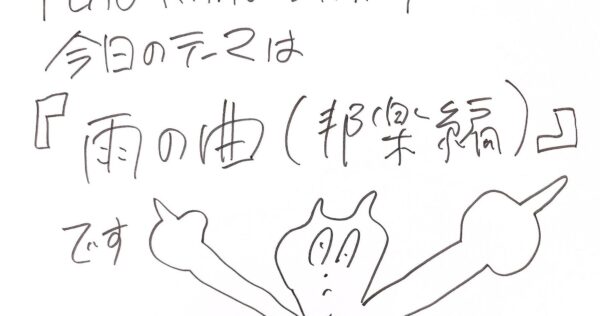 今日のテーマは
『雨の曲(邦楽編)』
です